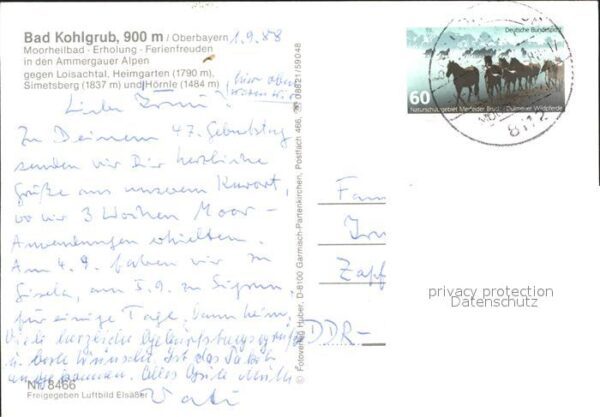 Bad Kohlgrub, 900 m / Oberbayern
Moorheilbad - Erholung - Ferienfreuden
in den Ammergauer Alpen
gegen Loisachtal, Heimgarten (1790 m),
Simetsberg (1837 m) und Hörnle (1484 m)
1.9.88
hier oben
Zu Deinem 47. Geburtstag
senden wir Dir herzliche
Grüße aus unserem Kurort,
wo wir 3 Wochen Moor-
Anwendungen erhielten.
Am 4.9. fahren wir zu
Gisela, am 5.9. zu Sigrun
für einige Tage, dann heim.
Viele herzliche Geburtstagsgrüße
u. beste Wünsche. Ist das Paket
angekommen. Alles Gute
Vati
Nr. 8466
Freigegeben Luftbild Elsäßer
© Fotoverlag Huber, D-8100 Garmisch-Partenkirchen, Postfach 466, 08821/59048
Deutsche Bundespost
60
Naturschutzgebiet Merfelder Bruch / Dülmener Wildpferde
Fam
Zapf
DDR-
privacy protection
Datenschutz